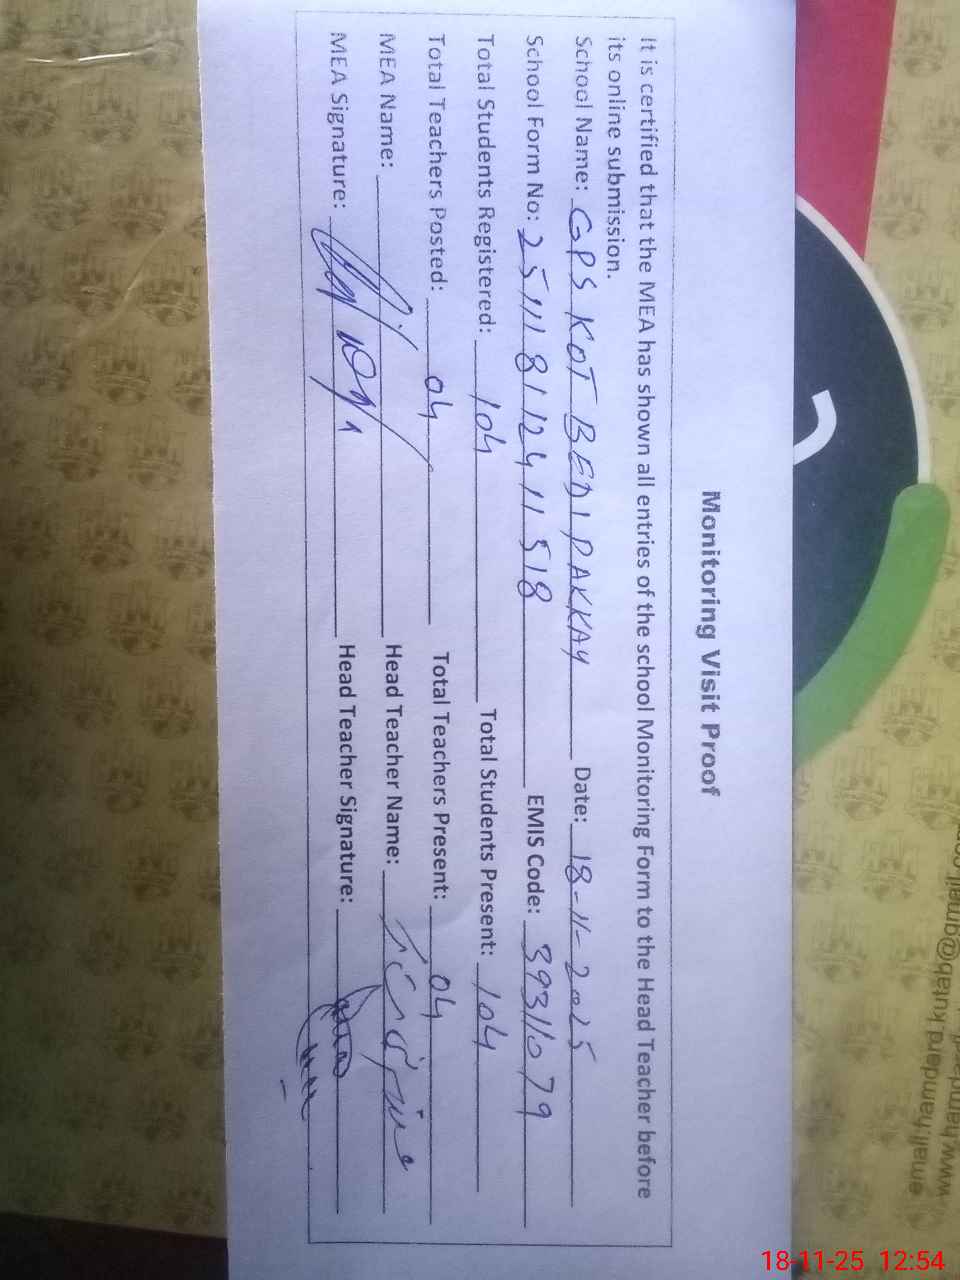 Monitoring Visit Proof
It is certified that the MEA has shown all entries of the school Monitoring Form to the Head Teacher before
its online submission.
School Name: GPS KOT BEDI DAKKAY Date: 18-11-2025
School Form No: 251118112411518 EMIS Code: 39311079
Total Students Registered: 104 Total Students Present: 104
Total Teachers Posted: 04 Total Teachers Present: 04
MEA Name: Head Teacher Name:
MEA Signature: Head Teacher Signature:
email:hamdard.batuk@gmail.com
18-11-25 12:54